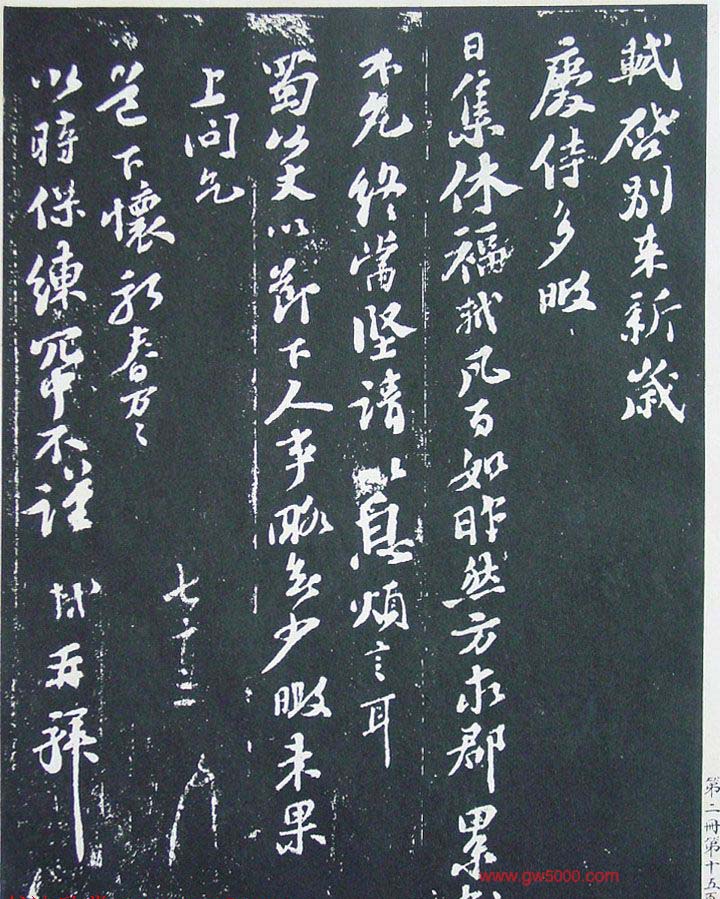 軾啓別來新歲
慶侍多暇
日集休福軾凡百如昨然方求郡累
不允終當堅請以息煩言耳
蜀公丈以節下人事略無少暇未果
上問允
邑下懷新春万〻
以時保練不謹
軾再拜
七十二
第二冊第十五
www.gw5000.com